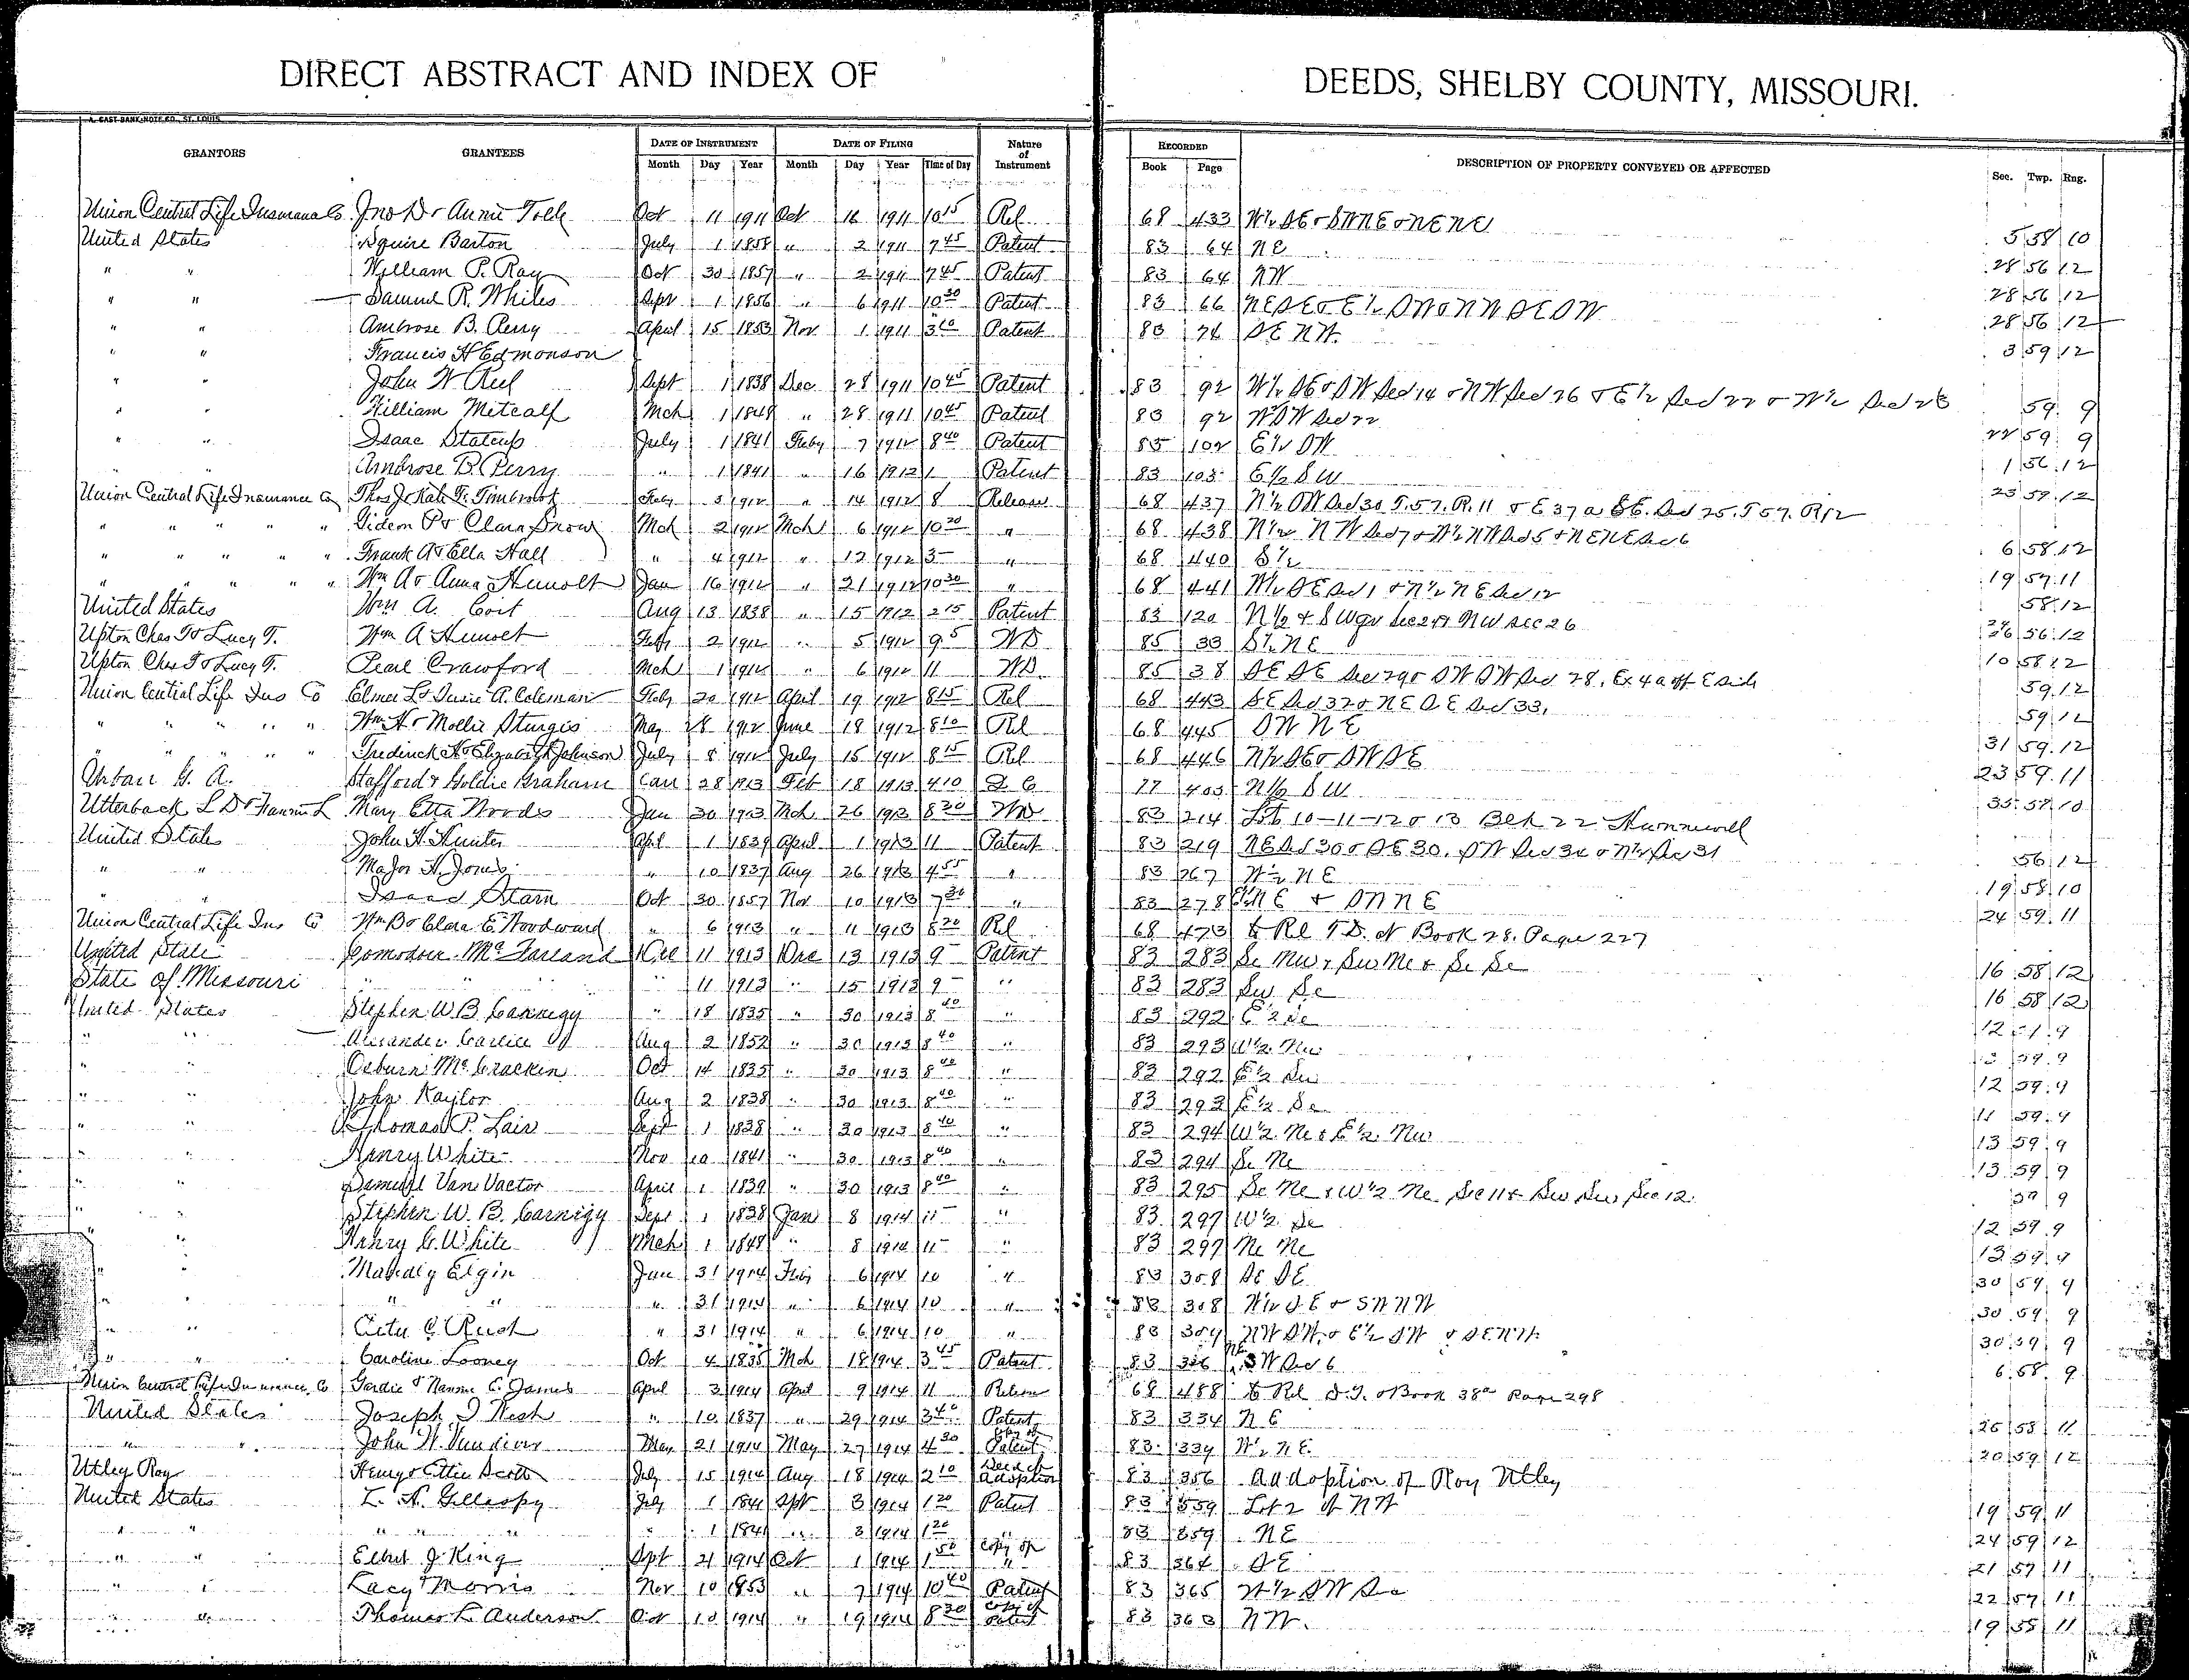 DIRECT ABSTRACT AND INDEX OF DEEDS, SHELBY COUNTY, MISSOURI.
A. GAST BANK NOTE CO., ST. LOUIS
GRANTORS GRANTEES DATE OF INSTRUMENT DATE OF FILING Nature of Instrument RECORDED DESCRIPTION OF PROPERTY CONVEYED OR AFFECTED Sec. Twp. Rng.
Month Day Year Month Day Year Time of Day Book Page
Union Central Life Insurance Co Jno D & Annie Oct 11 1911 Oct 16 1911 10 15 Rel 68 433 W½ SE & SW NE & NE NE 5 58 10
United States Squire Barton July 1 1858 " 2 1911 7 45 Patent 83 64 NE 28 56 12
" " William P. Ray Oct 30 1857 " 2 1911 7 45 Patent 83 64 NW 28 56 12
" " Samuel R. Whiles Sept 1 1856 " 6 1911 10 30 Patent 83 66 28 56 12
" " Ambrose B. Perry April 15 1853 Nov 1 1911 Patent 83 SE NW 3 59 12
" " Francis H Edmonson
" " John W Sept 1 1838 Dec 28 1911 10 45 Patent 83 92 W½ SE & SW Sec 14 & NW Sec 26 & E½ Sec 22 & W½ Sec 59 9
" " William Metcalf Mch 1 1848 " 28 1911 10 45 Patent 83 92 Sec 22 22 59 9
" " Isaac July 1 1841 Feby 7 1912 8 40 Patent 102 E½ SW 1 56 12
" " Ambrose B. Perry " 1 1841 " 16 1912 1 Patent 83 103 E½ SW 23 59 12
Union Central Life Insurance Co Thos J & Kate F. Timbrook Feby 3 1912 " 14 1912 8 Release 68 437 N½ SW Sec 30 T.57. R.11 & E 37 a SE. Sec 25. T57. R12
" " " " " Gideon P & Clara Snow Mch 2 1912 Mch 6 1912 10 20 " 68 438 6 58 12
" " " " " Frank A & Ella Hall " 4 1912 " 12 1912 3 " 68 440 S½ 19 57 11
" " " " " Wm A & Anna Hunolt Jan 16 1912 " 21 1912 10 30 " 68 441 W½ SE Sec 1 & N½ NE Sec 12 58 12
United States Wm A. Aug 13 1838 " 15 1912 2 15 Patent 83 120 56 12
Upton Chas T & Lucy T. Wm A Hunolt Feby 2 1912 " 5 1912 9 5 WD 85 33 S½ NE 10 58 12
Upton Chas T & Lucy T. Pearl Crawford Mch 1 1912 " 6 1912 11 WD 85 38 SE SE Sec 29 & SW SW Sec 28. Ex 4 a off E side 59 12
Union Central Life Ins Co Elmer L & Susie A. Coleman Feby 20 1912 April 19 1912 8 15 Rel 68 443 SE Sec 32 & NE SE Sec 33. 59 12
" " " " " Wm H & Mollie Sturgis May 28 1912 June 18 1912 8 10 Rel 68 445 SW NE 31 59 12
" " " " " Frederick H & Elizabeth Johnson July 8 1912 July 15 1912 8 15 Rel 68 446 N½ SE & SW SE 23 59 11
Urban G. A. Stafford & Goldie Graham Jan 28 1913 Feb 18 1913 4 10 77 403 N½ SW 35 57 10
Utterback L D & Fannie L Mary Etta Woods Jan 30 1913 Mch 26 1913 8 30 WD 83 214 Lots 10-11-12 & 13 Blk 22 Hunnewell
United States John H. Hunter Apl 1 1839 April 1 1913 11 Patent 83 219 56 12
" " Major H. Jones " 10 1837 Aug 26 1913 4 55 " 83 267 W½ NE 19 58 10
" " Isaac Starn Oct 30 1857 Nov 10 1913 7 30 " 83 278 24 59 11
Union Central Life Ins Co Wm B & Clara E Woodward " 6 1913 " 11 1913 8 20 Rel 68 473 to Rel Book 28. Page 227
United State Comodore McFarland Dec 11 1913 Dec 13 1913 9 Patent 83 283 Se Nw & Sw Ne & Se Se 16 58 12
State of Missouri " " " 11 1913 " 15 1913 9 " 83 283 Sw Se 16 58 12
United States Stephen W. B. Carnegy " 18 1835 " 30 1913 8 40 " 83 292 E½ Se 12 9
" " Alexander Aug 2 1852 " 30 1913 8 40 " 83 293 W½ Nw 59 9
" " Osburn McCracken Oct 14 1835 " 30 1913 8 40 " 83 292 E½ Sw 12 59 9
" " John Kaylor Aug 2 1838 " 30 1913 8 40 " 83 293 E½ Se 11 59 9
" " Thomas P. Lair Sept 1 1838 " 30 1913 8 40 " 83 294 W½ Ne & E½ Nw 13 59 9
" " Henry White Nov 10 1841 " 30 1913 8 40 " 83 294 Se Ne 13 59 9
" " Samuel Van Vactor April 1 1839 " 30 1913 8 40 " 83 295 Se Ne & W½ Ne Sec 11 & Sw Sw Sec 12. 59 9
" Stephen W. B. Carnegy Sept 1 1838 Jan 8 1914 11 " 83 297 W½ Se 12 59 9
" Henry White Mch 1 1848 " 8 1914 11 " 83 297 Ne Ne 13 59 9
" Elgin Jan 31 1914 Feby 6 1914 10 " 83 308 SE SE 30 59 9
" " " 31 1914 " 6 1914 10 " 83 308 W½ SE & SW NW 30 59 9
" " " 31 1914 " 6 1914 10 " 83 309 NW SW & E½ SW & SE NW 30 59 9
" " Caroline Looney Oct 4 1835 Mch 18 1914 3 45 Patent 83 326 NE SW Sec 6 6 58 9
Union Central Life Insurance Co & Nannie C. James April 3 1914 April 9 1914 11 Release 68 488 to Rel D.T. Book 38 Page 298
United States Joseph " 10 1837 " 29 1914 3 40 Patent 83 334 NE 26 58 11
" " John W. Vandiver May 21 1914 May 27 1914 4 30 Copy of Patent 83 339 W½ NE. 20 59 12
Utley Roy Henry & Ettie Scott July 15 1914 Aug 18 1914 2 10 Deed of Adoption 83 356 Addoption of Roy Utley
United States L. H. Gillaspy July 1 1841 Sept 3 1914 1 20 Patent 83 359 Lot 2 of NW 19 59 11
" " " " " 1 1841 " 3 1914 1 20 " 83 359 NE 24 59 12
" " J. King Sept 21 1914 Oct 1 1914 1 50 Copy of " 83 364 SE 21 57 11
" " Lacy Morris Nov 10 1853 " 7 1914 10 40 Patent 83 365 W½ SW 22 57 11
" " Thomas L. Anderson Oct 10 1914 " 19 1914 8 30 Copy of Patent 83 363 NW. 19 58 11